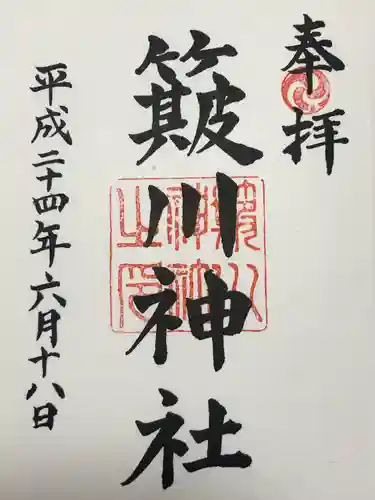 奉拝
簸川神社
平成二十四年六月十八日